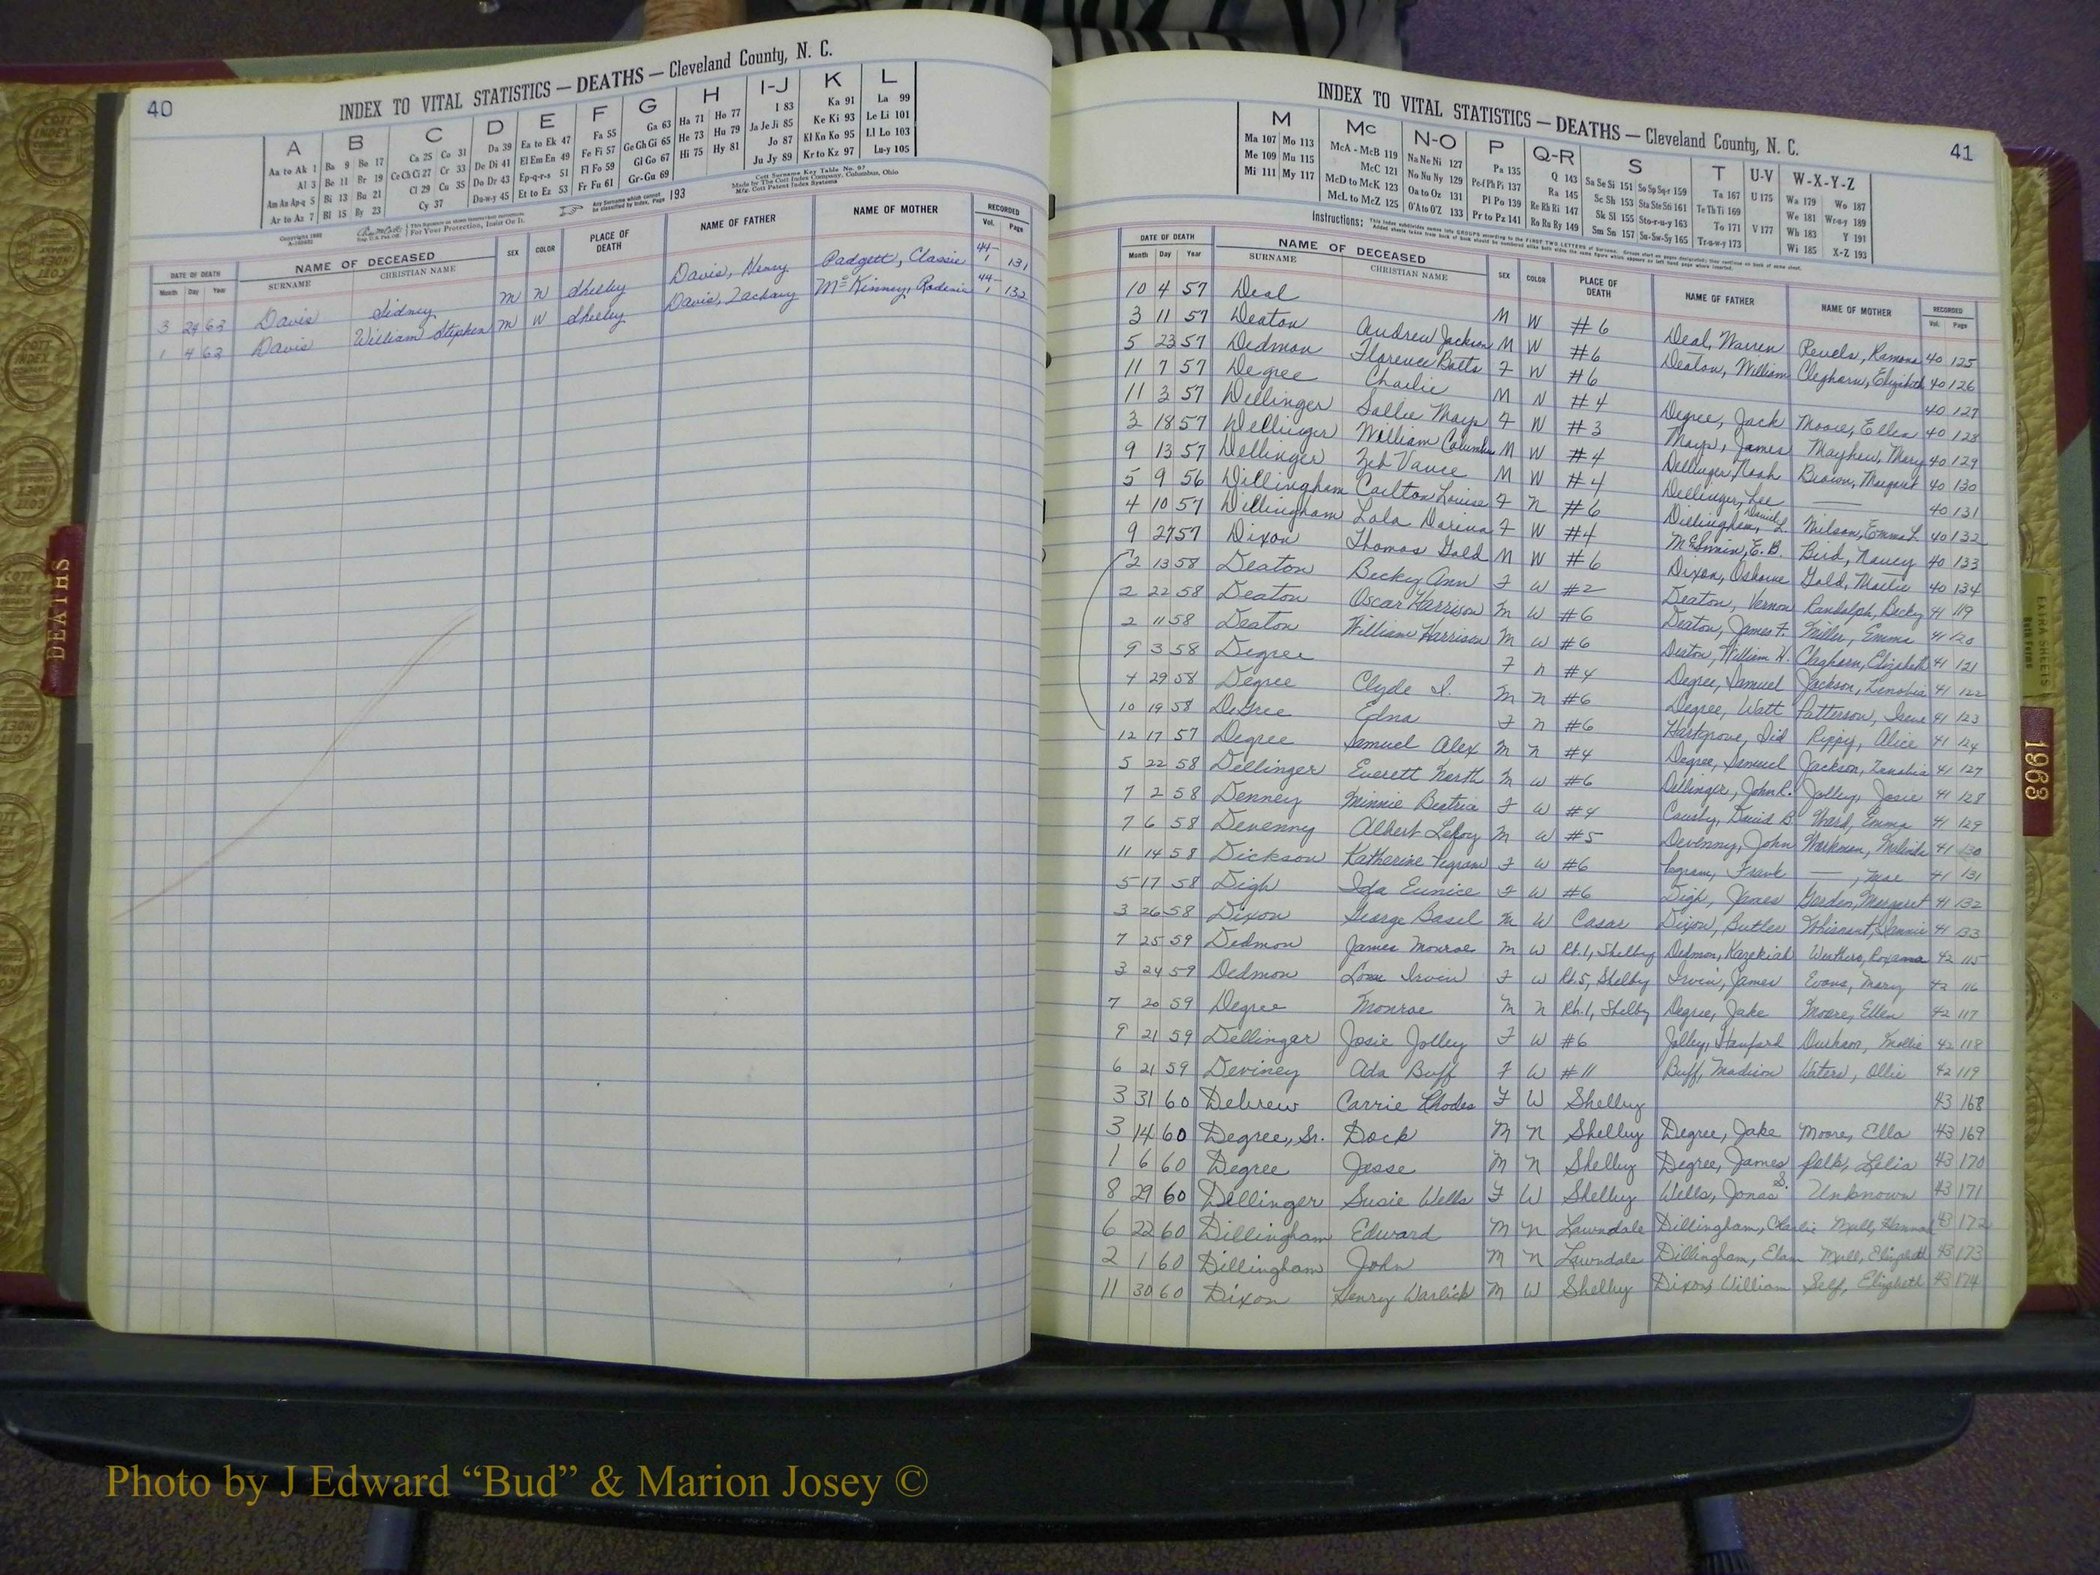 40
INDEX TO VITAL STATISTICS — DEATHS — Cleveland County, N. C.
A B C D E F G H I-J K L
Aa to Ak 1 Ba 9 Bo 17 Ca 25 Co 31 Da 39 Ea to Ek 47 Fa 55 Ga 63 Ha 71 Ho 77 I 83 Ka 91 La 99
Al 3 Be 11 Br 19 Ce Ch Ci 27 Cr 33 De Di 41 El Em En 49 Fe Fi 57 Ge Gh Gi 65 He 73 Hu 79 Ja Je Ji 85 Ke Ki 93 Le Li 101
Am An Ap-q 5 Bi 13 Bu 21 Cl 29 Cu 35 Do Dr 43 Ep-q-r-s 51 Fl Fo 59 Gl Go 67 Hi 75 Hy 81 Jo 87 Kl Kn Ko 95 Ll Lo 103
Ar to Az 7 Bl 15 By 23 Cy 37 Du-w-y 45 Et to Ez 53 Fr Fu 61 Gr-Gu 69 Ju Jy 89 Kr to Kz 97 Lu-y 105
Any Surname which cannot be classified by Index, Page 193
Cott Surname Key Table No. 97
Made by The Cott Index Company, Columbus, Ohio
Mfg. Cott Patent Index Systems
For Your Protection, Insist On It.
DATE OF DEATH NAME OF DECEASED SEX COLOR PLACE OF DEATH NAME OF FATHER NAME OF MOTHER RECORDED
Month Day Year SURNAME CHRISTIAN NAME Vol. Page
3 24 63 Davis Sidney M N Shelby Davis, Henry Padgett, Classie 44-1 131
1 4 63 Davis William Stephen M W Shelby Davis, Zachary McKinney, 44-1 132
41
INDEX TO VITAL STATISTICS — DEATHS — Cleveland County, N. C.
M Mc N-O P Q-R S T U-V W-X-Y-Z
Ma 107 Mo 113 McA - McB 119 Na Ne Ni 127 Pa 135 Q 143 Sa Se Si 151 So Sp Sq-r 159 Ta 167 U 175 Wa 179 Wo 187
Me 109 Mu 115 McC 121 No Nu Ny 129 Pe-f Ph Pi 137 Ra 145 Sc Sh 153 Sta Ste Sti 161 Te Th Ti 169 We 181 Wr-u-y 189
Mi 111 My 117 McD to McK 123 Oa to Oz 131 Pl Po 139 Re Rh Ri 147 Sk Sl 155 Sto-r-u-y 163 To 171 V 177 Wh 183 Y 191
McL to McZ 125 O'A to O'Z 133 Pr to Pz 141 Ro Ru Ry 149 Sm Sn 157 Su-Sw-Sy 165 Tr-u-w-y 173 Wi 185 X-Z 193
DATE OF DEATH NAME OF DECEASED SEX COLOR PLACE OF DEATH NAME OF FATHER NAME OF MOTHER RECORDED
Month Day Year SURNAME CHRISTIAN NAME Vol. Page
10 4 57 Deal M W #6 Deal, Warren Revels, Ramona 40 125
3 11 57 Deaton Andrew Jackson M W #6 Deaton, William Cleghorn, Elizabeth 40 126
5 23 57 Dedmon Florence Botts F W #6 40 127
11 7 57 Degree Charlie M N #4 Degree, Jack Moore, Ellen 40 128
11 3 57 Dellinger Sallie Mays F W #3 Mays, James Mayhew, Mary 40 129
3 18 57 Dellinger William Columbus M W #4 Dellinger, Noah Brown, Margaret 40 130
9 13 57 Dellinger Zeb Vance M W #4 Dellinger, Lee — 40 131
5 9 56 Dillingham Carlton Louise F N #6 Dillingham, Daniel L. Wilson, Emma L. 40 132
4 10 57 Dillingham Lola F W #4 E. B. Bird, Nancy 40 133
9 27 57 Dixon Thomas Gold M W #6 Dixon, Osborne Gold, 40 134
2 13 58 Deaton Becky Ann F W #2 Deaton, Vernon Randolph, Becky 41 119
2 22 58 Deaton Oscar Harrison M W #6 Deaton, James F. Miller, Emma 41 120
2 11 58 Deaton William Harrison M W #6 Deaton, William H. Cleghorn, Elizabeth 41 121
9 3 58 Degree F N #4 Degree, Samuel Jackson, Zenobia 41 122
4 29 58 Degree Clyde I. M N #6 Degree, Watt Patterson, Irene 41 123
10 19 58 DeGree Edna F N #6 Hartgrove, Sid Rippy, Alice 41 124
12 17 57 Degree Samuel Alex M N #4 Degree, Samuel Jackson, Zenobia 41 127
5 22 58 Dellinger Everett North M W #6 Dellinger, John R. Jolley, Josie 41 128
7 2 58 Denney Minnie Beatrice F W #4 Causby, David B. Ward, Emma 41 129
7 6 58 Devenny Albert LeRoy M W #5 Devenny, John Workman, Malinda 41 130
11 14 58 Dickson Katherine Ingram F W #6 Ingram, Frank —, Mae 41 131
5 17 58 Digh Ida Eunice F W #6 Digh, James Gordon, Margaret 41 132
3 26 58 Dixon George Basel M W Casar Dixon, Butler Whisnant, Fannie 41 133
7 25 59 Dedmon James Monroe M W Rt.1, Shelby Dedmon, Weathers, Roxanna 42 115
3 24 59 Dedmon Irvin F W Rt.5, Shelby Irvin, James Evans, Mary 42 116
7 20 59 Degree Monroe M N Rt.1, Shelby Degree, Jake Moore, Ellen 42 117
9 21 59 Dellinger Josie Jolley F W #6 Jolley, Hanford Durham, Mollie 42 118
6 21 59 Deviney Ada Buff F W #11 Buff, Madison Waters, Ollie 42 119
3 31 60 Debrew Carrie Rhodes F W Shelby 43 168
3 14 60 Degree, Sr. Dock M N Shelby Degree, Jake Moore, Ella 43 169
1 6 60 Degree Jesse M N Shelby Degree, James Pelk, Lelia 43 170
8 29 60 Dellinger Susie Wells F W Shelby Wells, Jonas S. Unknown 43 171
6 22 60 Dillingham Edward M N Lawndale Dillingham, Charlie Mull, Hannah 43 172
2 1 60 Dillingham John M N Lawndale Dillingham, Elam Mull, Elizabeth 43 173
11 30 60 Dixon Henry Warlick M W Shelby Dixon, William Self, Elizabeth 43 174
DEATHS
EXTRA SHEETS
1963
Photo by J Edward “Bud” & Marion Josey ©